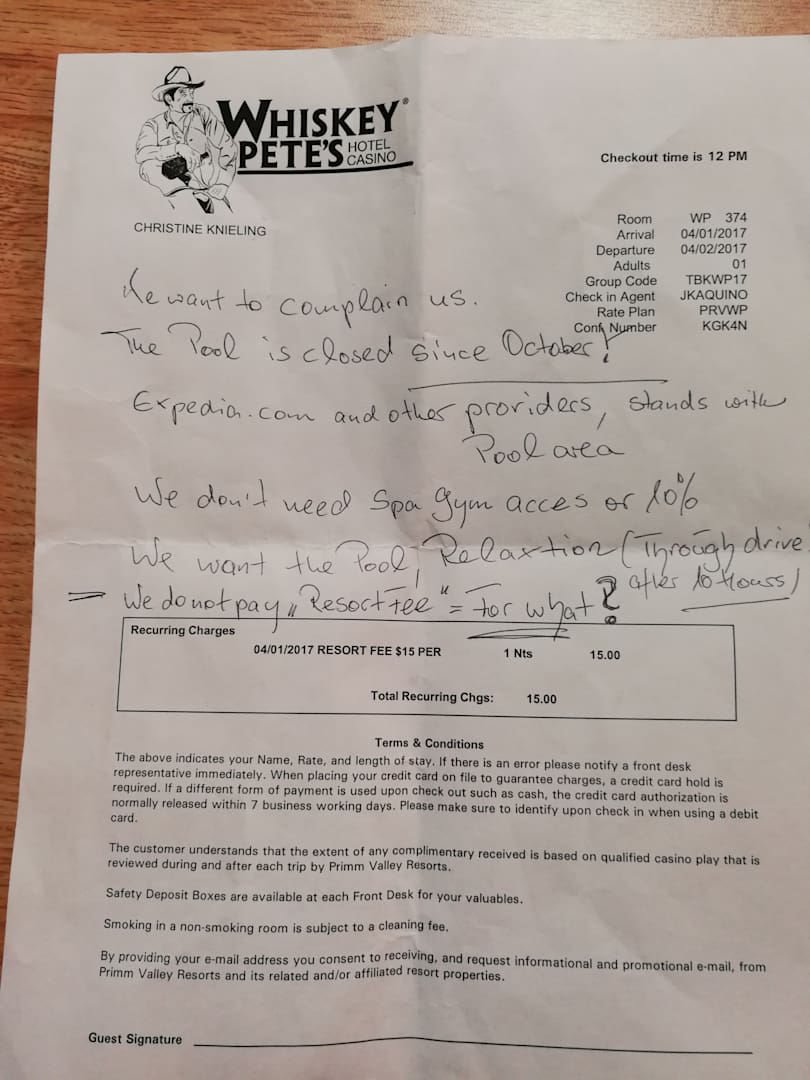 WHISKEY
PETE'S HOTEL CASINO®
Checkout time is 12 PM
CHRISTINE KNIELING
Room WP 374
Arrival 04/01/2017
Departure 04/02/2017
Adults 01
Group Code TBKWP17
Check in Agent JKAQUINO
Rate Plan PRVWP
Conf Number KGK4N
We want to complain us.
The Pool is closed since October!
Expedia.com and other providers, stands with
Pool area
We don't need Spa Gym acces or 10%
We want the Pool, Relaxtion (Through drive
after 10 Hours)
= We do not pay „Resort Fee" = For what?
Recurring Charges
04/01/2017 RESORT FEE $15 PER 1 Nts 15.00
Total Recurring Chgs: 15.00
Terms & Conditions
The above indicates your Name, Rate, and length of stay. If there is an error please notify a front desk
representative immediately. When placing your credit card on file to guarantee charges, a credit card hold is
required. If a different form of payment is used upon check out such as cash, the credit card authorization is
normally released within 7 business working days. Please make sure to identify upon check in when using a debit
card.
The customer understands that the extent of any complimentary received is based on qualified casino play that is
reviewed during and after each trip by Primm Valley Resorts.
Safety Deposit Boxes are available at each Front Desk for your valuables.
Smoking in a non-smoking room is subject to a cleaning fee.
By providing your e-mail address you consent to receiving, and request informational and promotional e-mail, from
Primm Valley Resorts and its related and/or affiliated resort properties.
Guest Signature